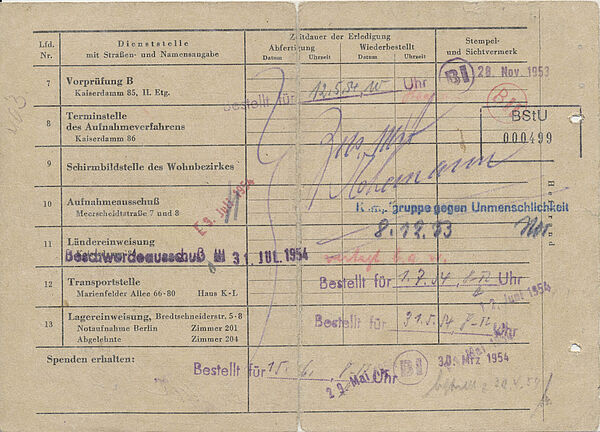 Lfd. Nr.
Dienststelle
mit Straßen- und Namensangabe
Zeitdauer der Erledigung
Abfertigung
Wiederbestellt
Datum Uhrzeit Datum Uhrzeit
Stempel- und Sichtvermerk
7 Vorprüfung B
Kaiserdamm 85, II. Etg.
Bestellt für 12.5.54, 10 Uhr
BI
28. Nov. 1953
8 Terminstelle
des Aufnahmeverfahrens
Kaiserdamm 86
BStU
000499
9 Schirmbildstelle des Wohnbezirkes
10 Aufnahmeausschuß
Meerscheidtstraße 7 und 8
Juli 1954
gruppe gegen Unmenschlichkeit
8.12.53
11 Ländereinweisung
Beschwerdeausschuß III 31. JUL. 1954
12 Transportstelle
Marienfelder Allee 66-80 Haus K-L
Bestellt für 1.7.54, Uhr
Juni 1954
13 Lagereinweisung, Bredtschneiderstr. 5-8
Notaufnahme Berlin Zimmer 201
Abgelehnte Zimmer 204
Bestellt für 31.5.54, Uhr
Spenden erhalten:
Bestellt für 15. 6. Uhr
Mai
BI
30. Mrz 1954